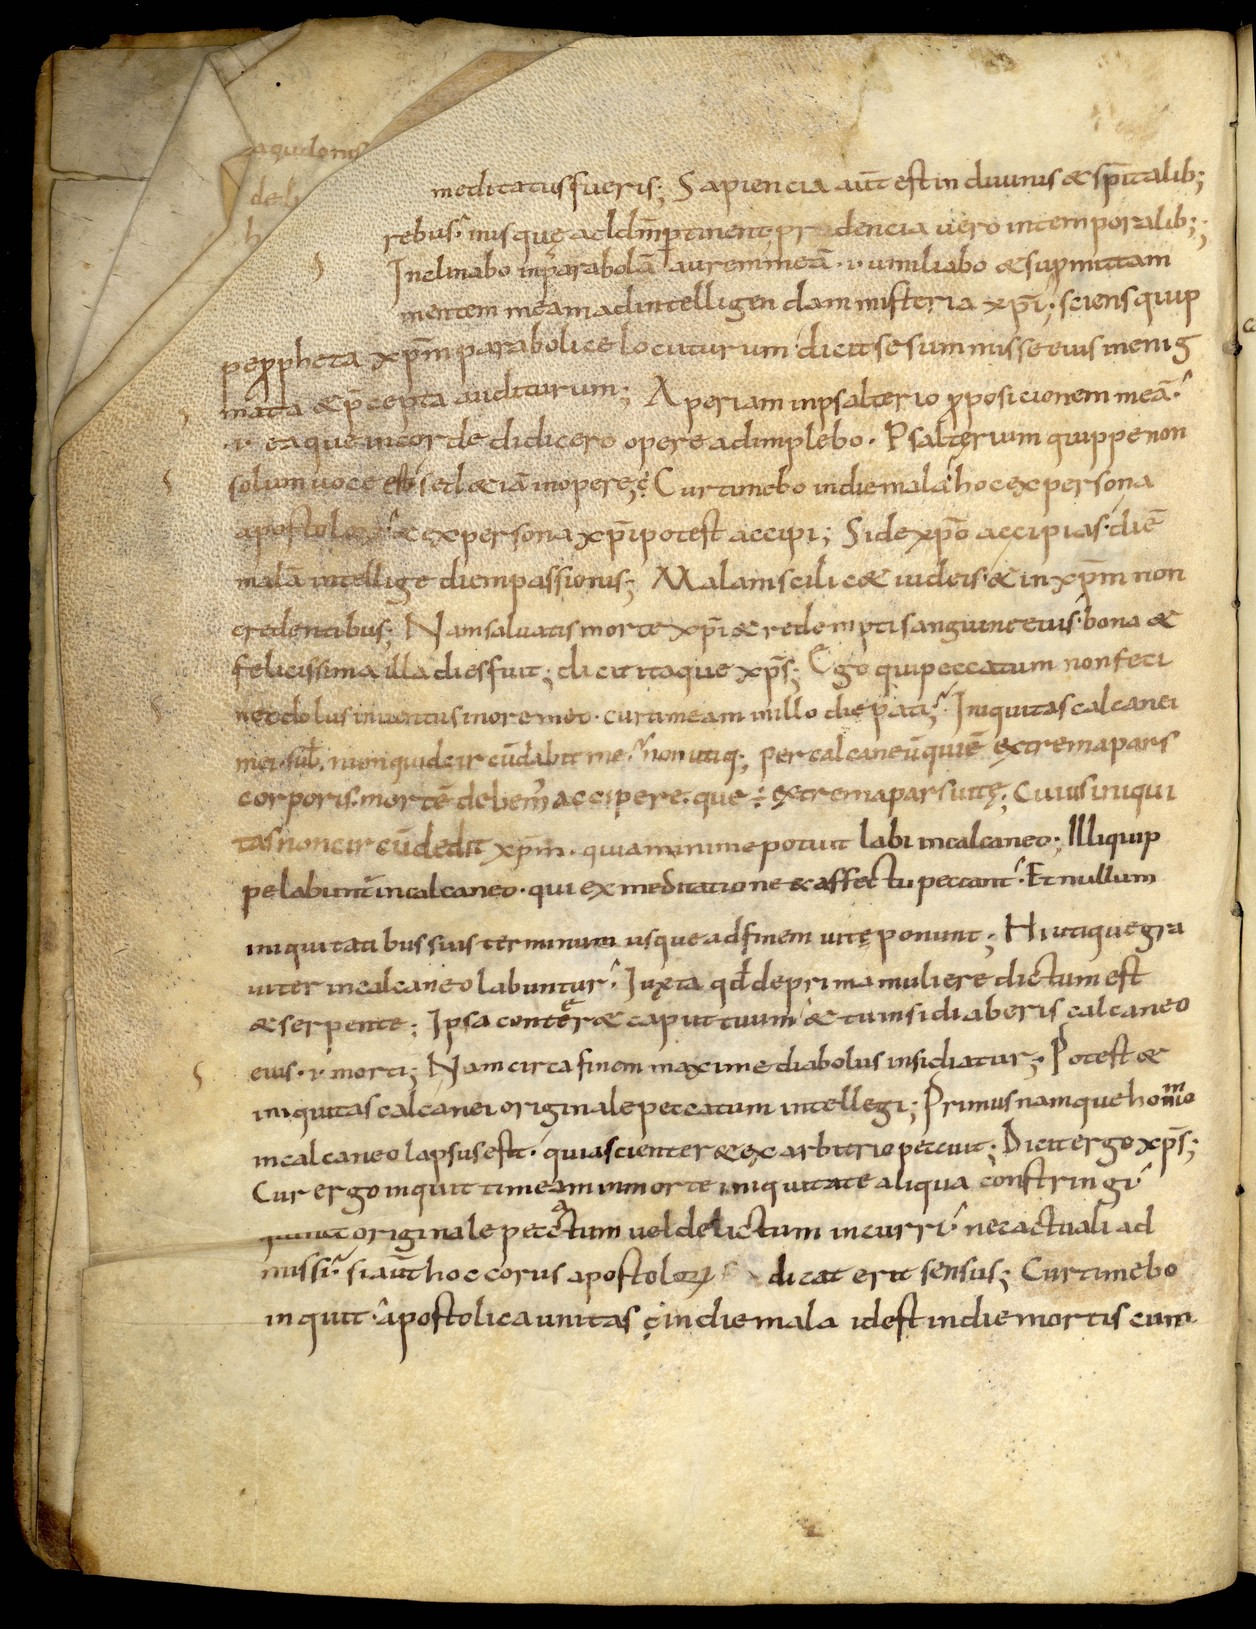 aqudoms
de li
h
meditatus fueris; Sapiencia aūt est in diuinis & sp̄italib;
rebus. in is quę ad dm̄ ptinent prudencia uero in temporalib;;
Inclinabo in parabolā aurem meā .i. umiliabo & supmittam
mentem meam ad intelligendam misteria xp̄i; sciens quip
pe ppheta xp̄m parabolice locuturum dicit se summisse eius in enig
mata & p̄cepta auditurum; Aperiam in psalterio pposicionem meā.
.i. ea que in corde didicero opere adimplebo. Psalterium quippe non
solum uoce est sed & iā in opere; Cur timebo in die mala hoc ex persona
apostolorꝝ & ex persona xp̄i potest accipi; Si de xp̄o accipias diē
malā intellige diem passionis; Malam scilic& iudeis & in xp̄m non
credentibus; Nam saluatis morte xp̄i & redemptis anguine eius bona &
felicissima illa dies fuit; dicit itaque xp̄s; Ego qui peccatum non feci
nec dolus inuentus in ore meo. cur timeam in illo die pati; Iniquitas calcanei
mei. sub. nunquid circūdabit me. non utiq; per calcaneū qui ē extrema pars
corporis. mortē debem accipere. que ÷ extrema pars uitę; Cuius iniqui
tas non circūdedit xp̄m. quia minime potuit labi in calcaneo; Illi quip
pe labunt in calcaneo. qui ex meditatione & affectu peccant. Et nullum
iniquitatibus suis terminum usque ad finem uitę ponunt; Hi utique gra
uiter in calcaneo labuntur. Iuxta qđ de prima muliere dictum est
& serpente; Ipsa conter& caput tuum & tu insidiaberis calcaneo
eius .i. morti; Nam circa finem maxime diabolus insidiatur; Potest &
iniquitas calcanei originale peccatum intellegi; Primus namque homo
in calcaneo lapsus est. quia scienter & ex arbitrio peccauit; Dicit ergo xp̄s;
Cur ergo inquit timeam in morte iniquitate aliqua constringi
qui nec originale peccatum uel delictum incurri nec actuali ad
missi. si aūt hoc corus apostolorꝝ dicat erit sensus; Cur timebo
inquit apostolica unitas in die mala id est in die mortis cum